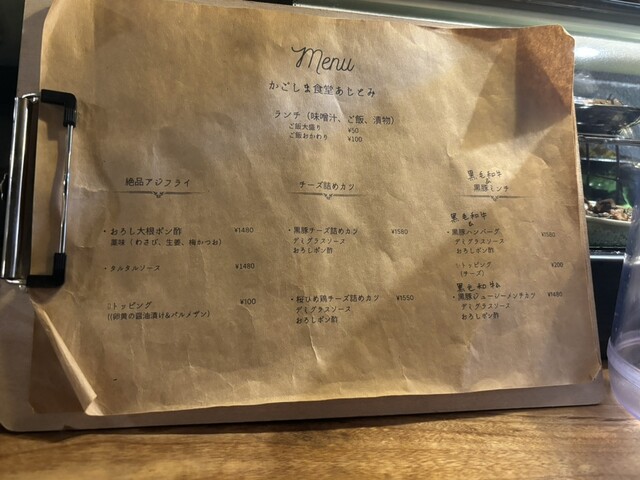 Menu
かごしま食堂あじとみ
ランチ（味噌汁、ご飯、漬物）
ご飯大盛り ¥50
ご飯おかわり ¥100
絶品アジフライ
・おろし大根ポン酢 ¥1480
薬味（わさび、生姜、梅かつお）
・タルタルソース ¥1480
トッピング ¥100
(卵黄の醤油漬け&パルメザン）
チーズ詰めカツ
・黒豚チーズ詰めカツ ¥1580
デミグラスソース
おろしポン酢
・桜ひめ鶏チーズ詰めカツ ¥1550
デミグラスソース
おろしポン酢
黒毛和牛
&
黒豚ミンチ
黒毛和牛
&
・黒豚ハンバーグ
デミグラスソース
おろしポン酢
トッピング ¥200
（チーズ）
黒毛和牛&
・黒豚ジューシーメンチカツ ¥1480
デミグラスソース
おろしポン酢